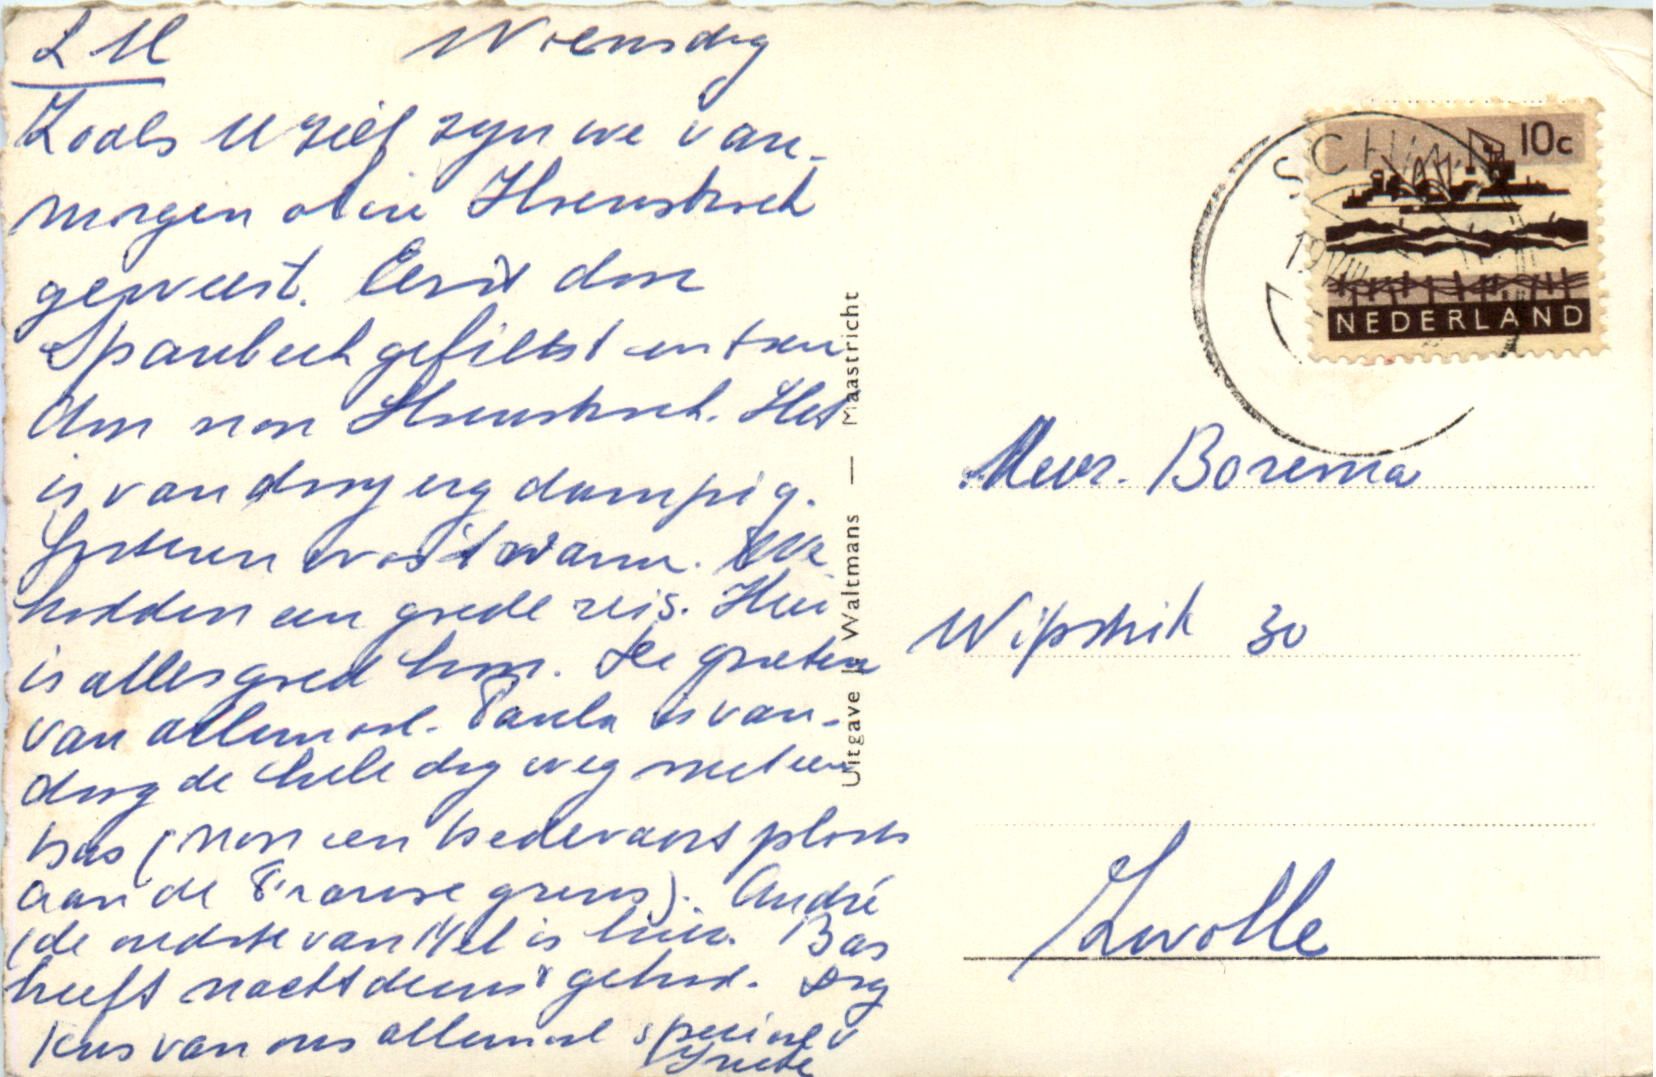 L M Woensdag
Zoals U ziet zyn we van-
morgen al in Hoensbroek
geweest. Eerst door
Spaubeek gefietst en toen
door naar Hoensbroek. Het
is vandaag erg dampig.
Gisteren was 't warm. We
hadden een goede reis. Hier
is alles goed hoor. De groeten
van allemaal. Paula is van-
daag de hele dag weg met een
bus (naar een bedevaart plaats
aan de Franse grens). André
(de oudste van Nel is hier. Bas
heeft nachtdienst gehad. Dag
kus van ons allemaal speciaal v
Uitgave Waltmans — Maastricht
SCHIN
19
10c
NEDERLAND
Mevr. Borema
Wipstrik 30
Zwolle